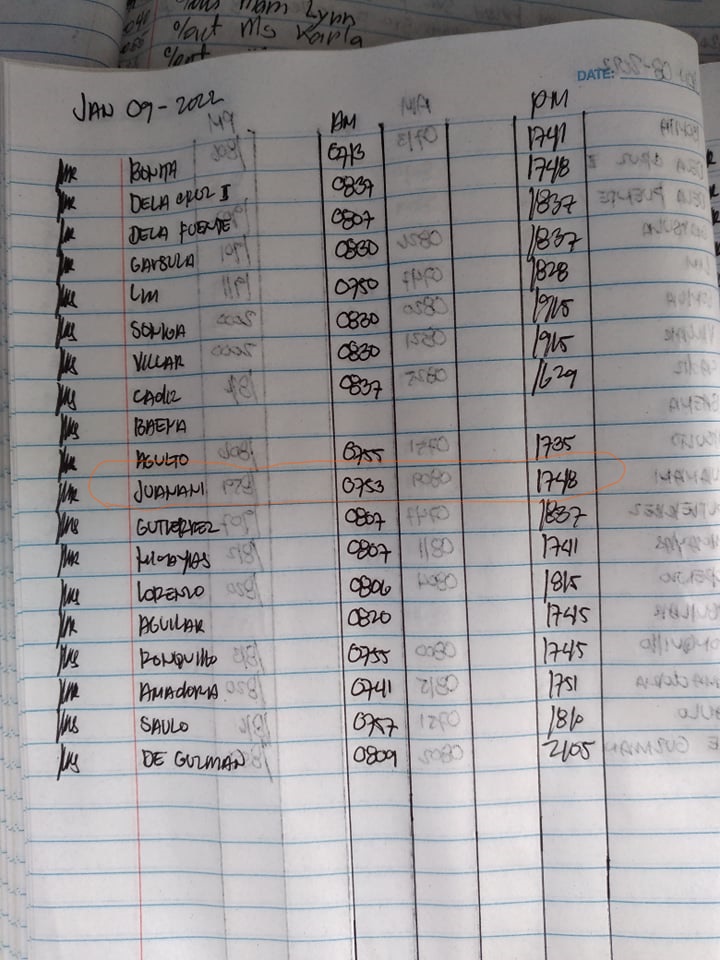 Ms Karla
DATE:
JAN 09-2022
AM PM
Mr BONITA 0713 1741
Mr DELA CRUZ I 0837 1748
Mr DELA FUENTE 0807 1837
Mr GAYSULA 0830 1837
Ms LIM 0750 1828
Ms SONGA 0830 1915
Ms VILLAR 0830 1915
Ms CADIZ 0837 1629
Ms BAENA
Mr AGULTO 0755 1735
Mr JUANANI 0753 1748
Ms GUTIERREZ 0807 1837
Mr 0807 1741
Ms LORENZO 0806 1815
Mr AGUILAR 0820 1745
Ms RONQUILLO 0755 1745
Mr AMADORIA 0741 1751
Ms SAULO 0757 1810
Ms DE GUZMAN 0809 2105